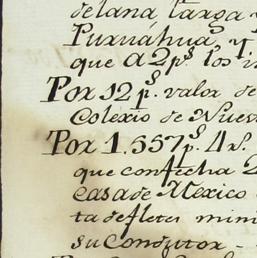 de lana, larga
Puruáhua, y.
que a 2ps. los
Por 12 ps. valor de
Colexio de Nuest
Por 1.557ps. 4rs.
que con fecha 2
casa de Mexico
ta de fletes mini
su Conductor -